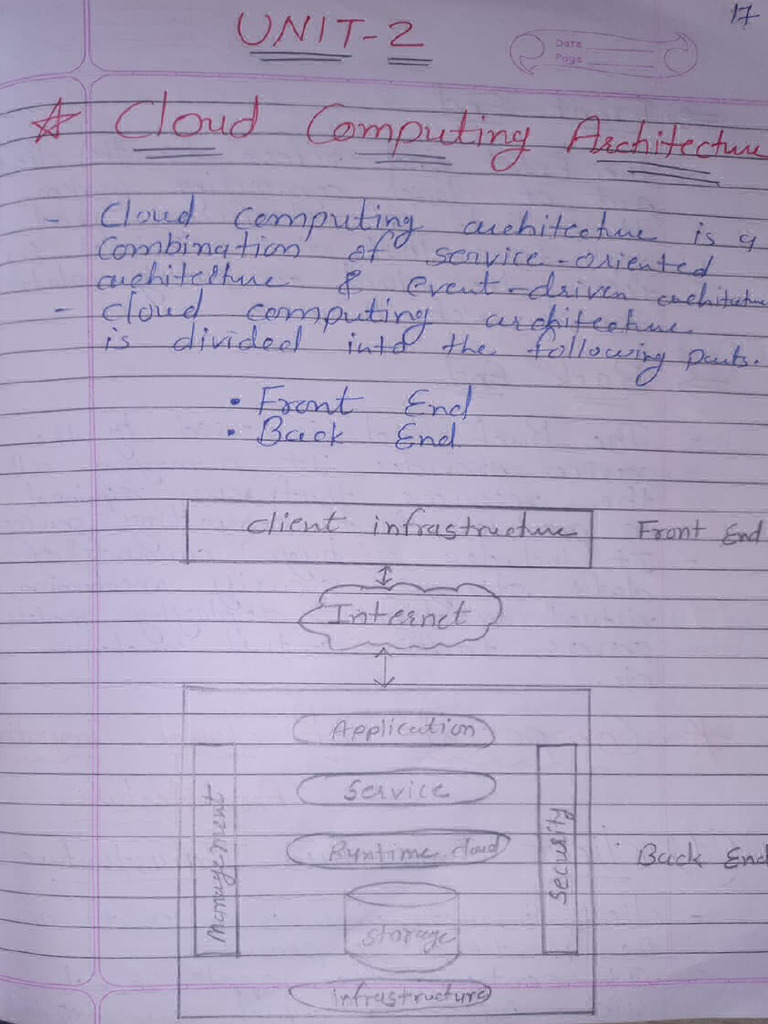 17
UNIT-2
Date
Page
☆ Cloud Computing Architecture
- Cloud computing architecture is a
combination of service-oriented
architecture & event-driven architecture
- Cloud computing architecture
is divided into the following parts.
• Front End
• Back End
Client infrastructure Front End
Internet
Application
Service
Management
Security
Runtime cloud
Back End
Storage
Infrastructure